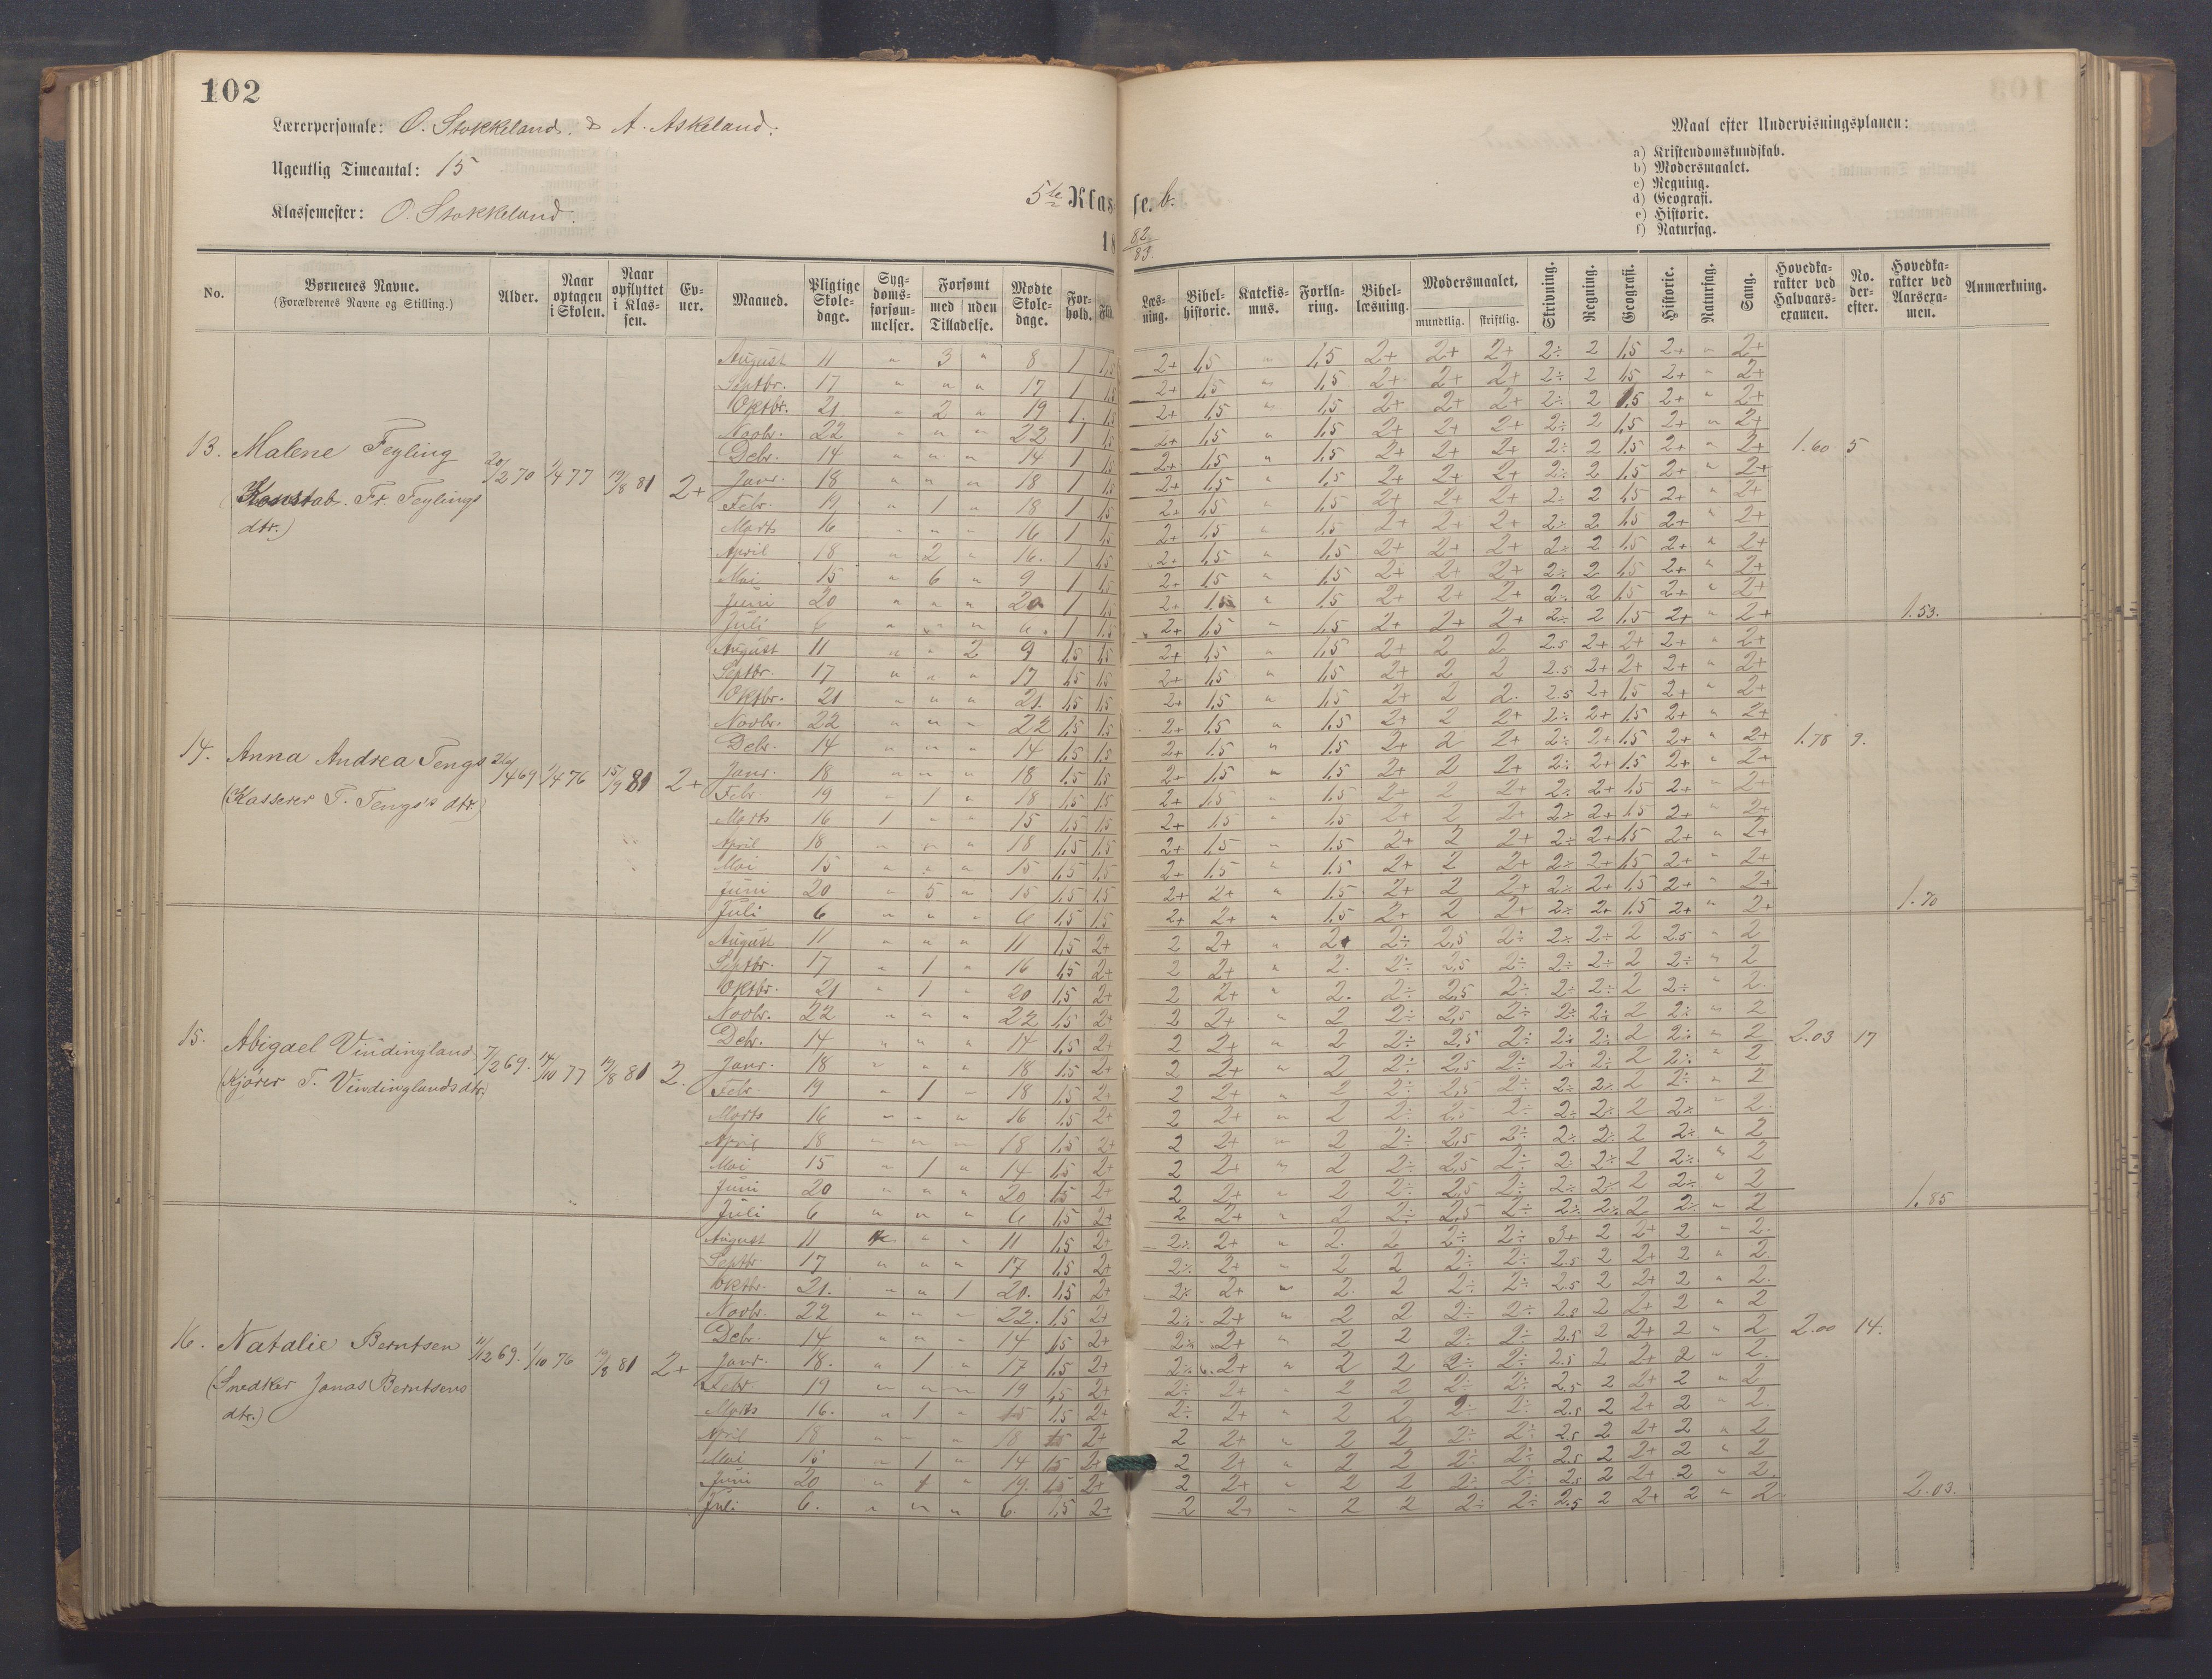 102
Lærerpersonale: O. Stokkeland. & A. Askeland.
Ugentlig Timeantal: 15
Klassemester: O. Stokkeland.
5te Klasse. b.
18 82/83.
Maal efter Undervisningsplanen:
a) Kristendomskundskab.
b) Modersmaalet.
c) Regning.
d) Geografi.
e) Historie.
f) Naturfag.
No. Børnenes Navne. (Forældrenes Navne og Stilling.) Alder. Naar optagen i Skolen. Naar opflyttet i Klassen. Evner. Maaned. Pligtige Skoledage. Sygdomsforsømmelser. Forsømt med uden Tilladelse. Mødte Skoledage. Forhold. Flid. Læsning. Bibelhistorie. Katekismus. Forklaring. Bibellæsning. Modersmaalet, mundtlig. skriftlig. Skrivning. Regning. Geografi. Historie. Naturfag. Sang. Hovedkarakter ved Halvaarsexamen. No. derefter. Hovedkarakter ved Aarsexamen. Anmærkning.
August 11 " 3 " 8 1 1,5 2+ 1,5 " 1,5 2+ 2+ 2+ 2÷ 2 1,5 2+ " 2+
Septbr. 17 " " " 17 1 1,5 2+ 1,5 " 1,5 2+ 2+ 2+ 2÷ 2 1,5 2+ " 2+
Oktbr. 21 " 2 " 19 1 1,5 2+ 1,5 " 1,5 2+ 2+ 2+ 2÷ 2 1,5 2+ " 2+
Novbr. 22 " " " 22 1 1,5 2+ 1,5 " 1,5 2+ 2+ 2+ 2÷ 2 1,5 2+ " 2+
13. Malene Feyling 20/2 70 1/4 77 19/8 81 2+ Debr. 14 " " " 14 1 1,5 2+ 1,5 " 1,5 2+ 2+ 2+ 2÷ 2 1,5 2+ " 2+ 1.60 5
(Konstab. Fr. Feylings Janr. 18 " " " 18 1 1,5 2+ 1,5 " 1,5 2+ 2+ 2+ 2÷ 2 1,5 2+ " 2+
dtr.) Febr. 19 " 1 " 18 1 1,5 2+ 1,5 " 1,5 2+ 2+ 2+ 2÷ 2 1,5 2+ " 2+
Marts 16 " " " 16 1 1,5 2+ 1,5 " 1,5 2+ 2+ 2+ 2÷ 2 1,5 2+ " 2+
April 18 " 2 " 16. 1 1,5 2+ 1,5 " 1,5 2+ 2+ 2+ 2÷ 2 1,5 2+ " 2+
Mai 15 " 6 " 9 1 1,5 2+ 1,5 " 1,5 2+ 2+ 2+ 2÷ 2 1,5 2+ " 2+
Juni 20 " " " 20 1 1,5 2+ 1,5 " 1,5 2+ 2+ 2+ 2÷ 2 1,5 2+ " 2+
Juli 6 " " " 6. 1 1.5 2+ 1,5 " 1,5 2+ 2+ 2+ 2÷ 2 1,5 2+ " 2+ 1.53.
August 11 " " 2 9 1,5 1,5 2+ 1,5 " 1,5 2+ 2 2 2.5 2+ 2+ 2+ " 2+
Septbr. 17 " " " 17 1,5 1,5 2+ 1,5 " 1,5 2+ 2 2 2.5 2+ 2+ 2+ " 2+
Oktbr. 21 " " " 21. 1,5 1,5 2+ 1,5 " 1,5 2+ 2 2. 2.5 2+ 1,5 2+ " 2+
Novbr. 22 " " " 22 1,5 1,5 2+ 1,5 " 1,5 2+ 2 2+ 2÷ 2+ 1,5 2+ " 2+
14. Anna Andrea Tengs 1/4 76 15/9 81 2+ Debr. 14 " " " 14 1,5 1,5 2+ 1,5 " 1,5 2+ 2 2+ 2÷ 2+ 1,5 2+ " 2+ 1.78 9.
(Kasserer T. Tengs's dtr.) Janr. 18 " " " 18 1,5 1,5 2+ 1,5 " 1,5 2+ 2 2+ 2÷ 2+ 1,5 2+ " 2+
Febr. 19 " 1 " 18 1,5 1,5 2+ 1,5 " 1,5 2+ 2 2+ 2÷ 2+ 1,5 2+ " 2+
Marts 16 1 " " 15 1,5 1,5 2+ 1,5 " 1,5 2+ 2 2+ 2÷ 2+ 1,5 2+ " 2+
April 18 " " " 18 1,5 1,5 2+ 1,5 " 1,5 2+ 2 2+ 2÷ 2+ 1,5 2+ " 2+
Mai 15 " " " 15 1,5 1,5 2+ 1,5 " 1,5 2+ 2 2+ 2÷ 2+ 1,5 2+ " 2+
Juni 20 " 5 " 15 1,5 1,5 2+ 2+ " 1,5 2+ 2 2+ 2÷ 2+ 1,5 2+ " 2+
Juli 6 " " " 6 1,5 1,5 2+ 2+ " 1,5 2+ 2 2+ 2÷ 2+ 1,5 2+ " 2+ 1.70
August 11 " " " 11 1,5 2+ 2 2+ " 2+ 2÷ 2,5 2÷ 2÷ 2÷ 2 2.5 " 2
Septbr. 17 " 1 " 16 1,5 2+ 2 2+ " 2. 2÷ 2,5 2÷ 2÷ 2÷ 2 2÷ " 2
Oktbr. 21 " 1 " 20 1,5 2+ 2 2+ " 2. 2÷ 2,5 2÷ 2÷ 2÷ 2 2÷ " 2.
Novbr. 22 " " " 22 1,5 2+ 2 2+ " 2 2÷ 2,5 2÷ 2÷ 2÷ 2 2÷ " 2
15. Abigael Vindingland 7/2 69. 14/10 77 19/8 81 2. Debr. 14 " " " 14 1,5 2+ 2 2+ " 2 2÷ 2,5 2÷ 2÷ 2÷ 2 2÷ " 2 2.03 17
(Kjører T. Vindinglands dtr.) Janr. 18 " " " 18 1,5 2+ 2 2+ " 2 2÷ 2,5 2÷ 2÷ 2÷ 2 2÷ " 2
Febr. 19 " 1 " 18 1,5 2+ 2 2+ " 2 2÷ 2,5 2÷ 2÷ 2÷ 2 2÷ " 2
Marts 16 " " " 16 1,5 2+ 2 2+ " 2 2÷ 2,5 2÷ 2÷ 2÷ 2 2÷ " 2
April 18 " " " 18 1,5 2+ 2 2+ " 2 2÷ 2,5 2÷ 2÷ 2÷ 2 2÷ " 2
Mai 15 " 1 " 14 1,5 2+ 2 2+ " 2 2÷ 2,5 2÷ 2÷ 2÷ 2 2÷ " 2
Juni 20 " " " 20 1,5 2+ 2 2+ " 2 2÷ 2,5 2÷ 2÷ 2÷ 2 2÷ " 2
Juli 6 " " " 6 1,5 2+ 2 2+ " 2 2÷ 2,5 2÷ 2÷ 2÷ 2 2÷ " 2 1.85
August 11 " " " 11 1,5 2+ 2÷ 2+ " 2. 2 2÷ 2÷ 3+ 2 2+ 2 " 2.
Septbr. 17 " " " 17 1,5 2+ 2÷ 2+ " 2 2 2÷ 2÷ 2.5 2 2+ 2 " 2.
Oktbr. 21. " " 1 20. 1,5 2+ 2÷ 2+ " 2. 2 2÷ 2÷ 2.5 2 2+ 2 " 2.
Novbr. 22 " " " 22. 1,5 2+ 2÷ 2+ " 2 2 2÷ 2÷ 2.5 2 2+ 2 " 2
16. Natalie Berntsen 11/12 69. 1/10 76 19/8 81 2+ Debr. 14 " " " 14 1,5 2+ 2÷ 2+ " 2 2 2÷ 2÷ 2.5 2 2+ 2 " 2 2.00 14.
(Snedker Jonas Berntsens Janr. 18. " 1 " 17 1,5 2+ 2÷ 2+ " 2 2 2÷ 2÷ 2.5 2 2+ 2 " 2.
dtr.) Febr. 19 " " " 19 1,5 2+ 2÷ 2+ " 2 2 2÷ 2÷ 2.5 2 2+ 2 " 2
Marts 16. " 1 " 15 1,5 2+ 2÷ 2+ " 2 2 2÷ 2÷ 2.5 2 2+ 2 " 2.
April 18 " " " 18 1,5 2+ 2 2+ " 2 2 2÷ 2÷ 2.5 2 2+ 2 " 2
Mai 15 " 1 " 14 1,5 2+ 2 2+ " 2 2 2÷ 2÷ 2.5 2 2+ 2 " 2
Juni 20 " 1 " 19. 1,5 2+ 2 2+ " 2 2 2÷ 2÷ 2.5 2 2+ 2 " 2.
Juli 6. " " " 6. 1,5 2+ 2 2+ " 2 2 2÷ 2÷ 2.5 2 2+ 2 " 2. 2.03.